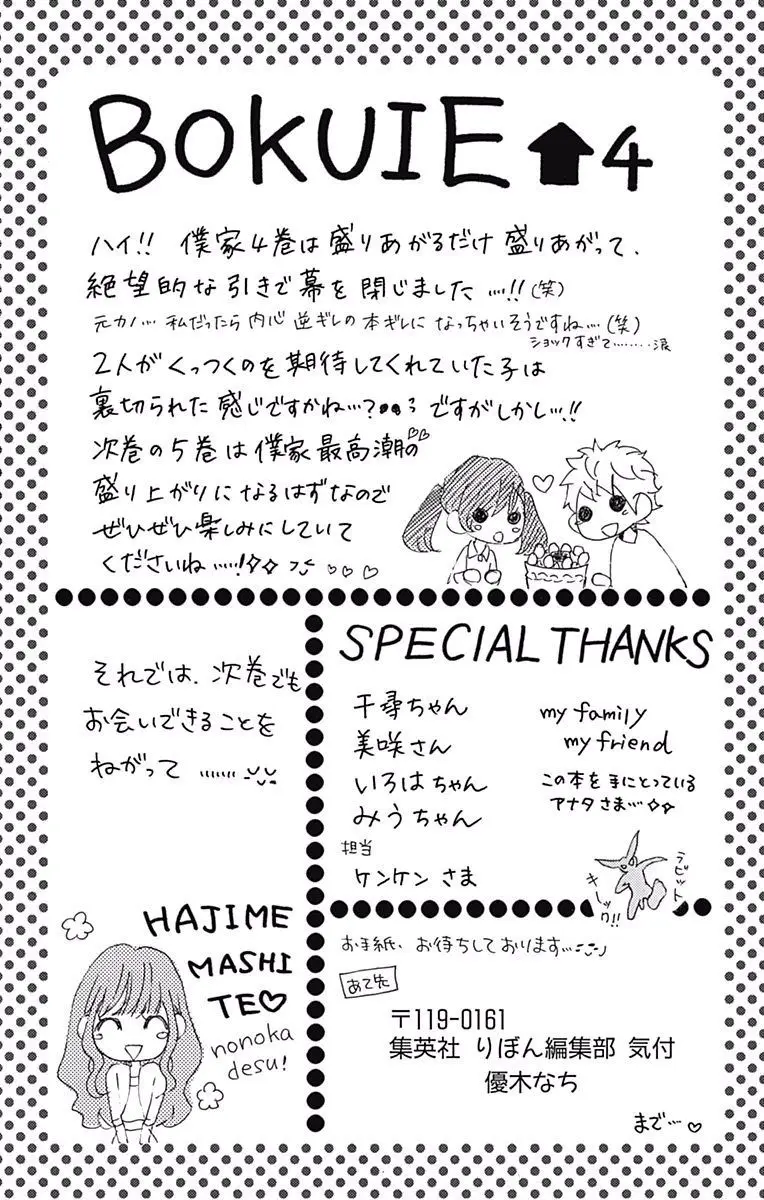 BOKUIE ⬆4
ハイ!! 僕家4巻は盛りあがるだけ盛りあがって、
絶望的な引きで幕を閉じました…!!(笑)
元カノ… 私だったら内心逆ギレの本ギレになっちゃいそうですね…(笑)
ショックすぎて………涙
2人がくっつくのを期待してくれていた子は
裏切られた感じですかね…? ですがしかし…!!
次巻の5巻は僕家最高潮の♡♡
盛り上がりになるはずなので
ぜひぜひ楽しみにしていて
くださいね……!✧✧ ♡♡♡
それでは、次巻でも
お会いできることを
ねがって ……
HAJIME
MASHI
TE♡
nonoka
desu!
SPECIAL THANKS
千尋ちゃん
美咲さん
いろはちゃん
みうちゃん
担当
ケンケン さま
my family
my friend
この本を手にとっている
アナタさま…✧✧
ラビット
キーック!!
お手紙、お待ちしております…
あて先
〒119-0161
集英社 りぼん編集部 気付
優木なち
まで…♡